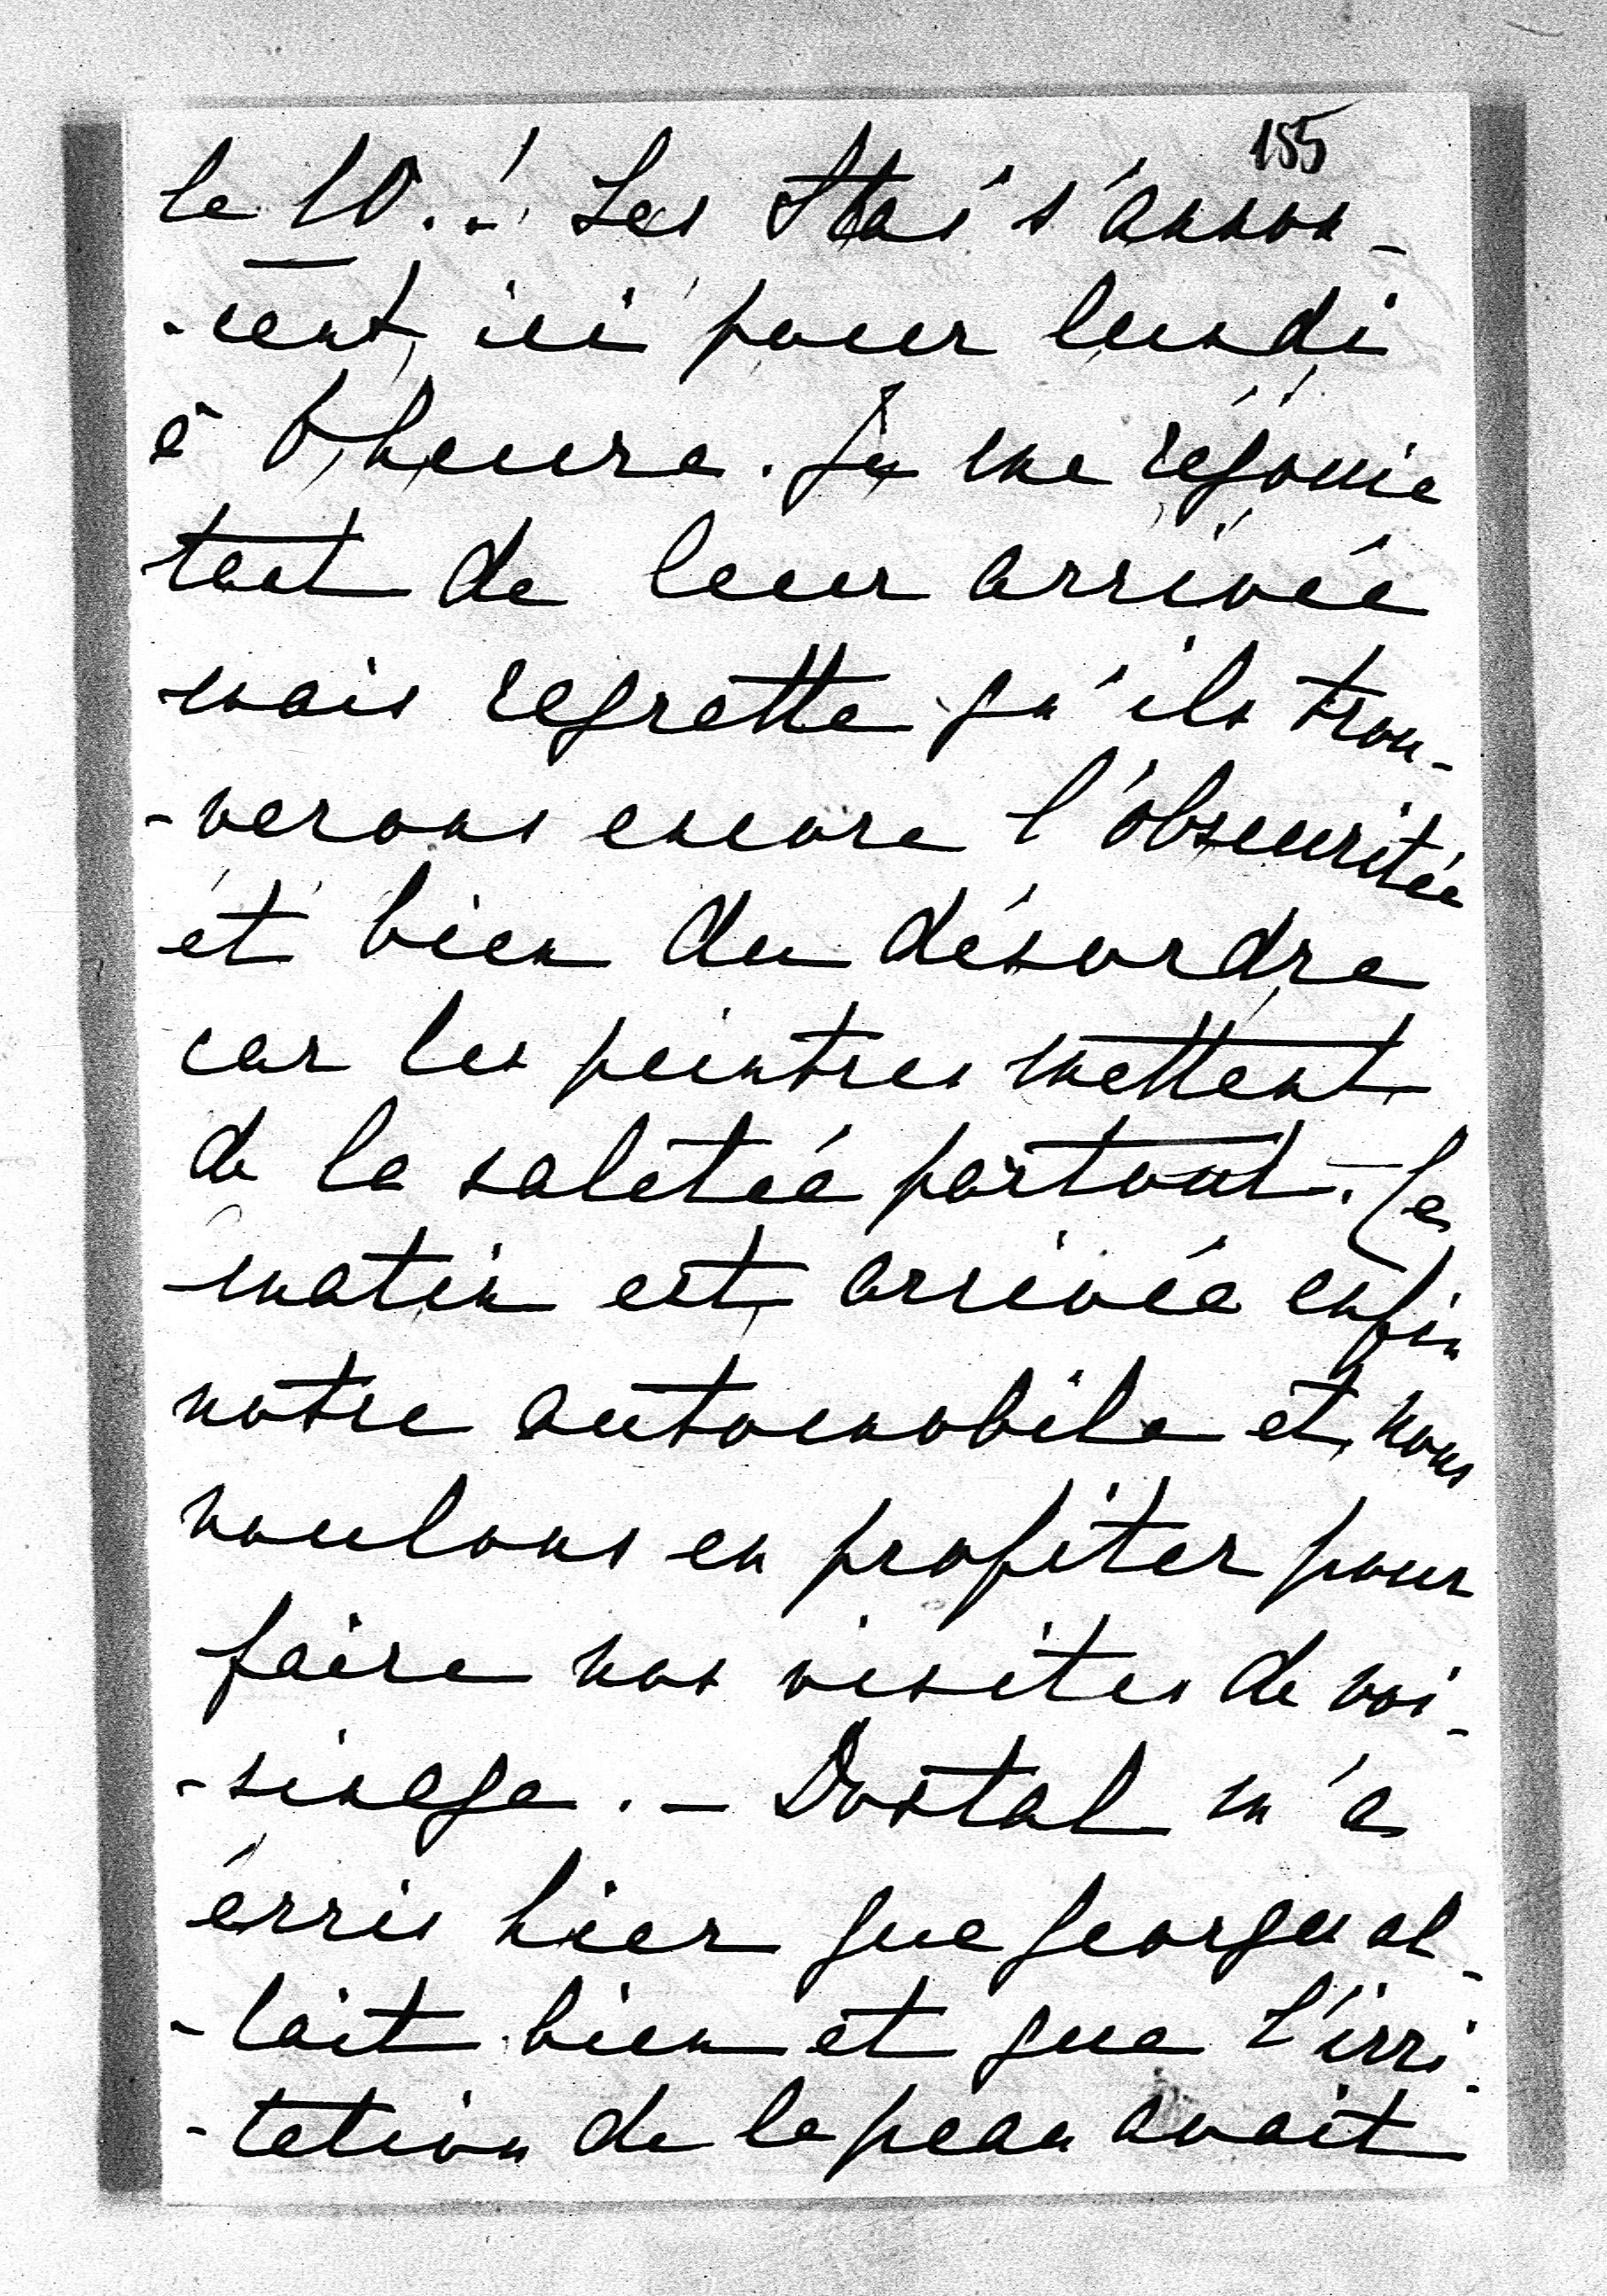 155
le 10.-! Les Stas' s'annon-
-cent ici pour lundi
à 6 heure. Je me réjouie
tant de leur arrivée
mais regrette qu'ils trou-
-verons encore l'obscuritée
et bien du désordre
car les peintres mettent
de la saletée partout. - Ce
matin est arrivée enfin
notre automobile et nous
voulons en profiter pour
faire nos visites de voi-
-sinage. - Dostal m'a
écris hier que Georges al-
-lait bien et que l'irri-
-tation de la peau avait